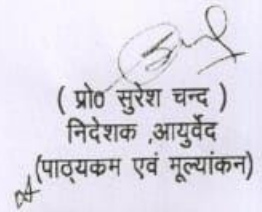 ( प्रो० सुरेश चन्द )
निदेशक ,आयुर्वेद
(पाठ्यकम एवं मूल्यांकन)